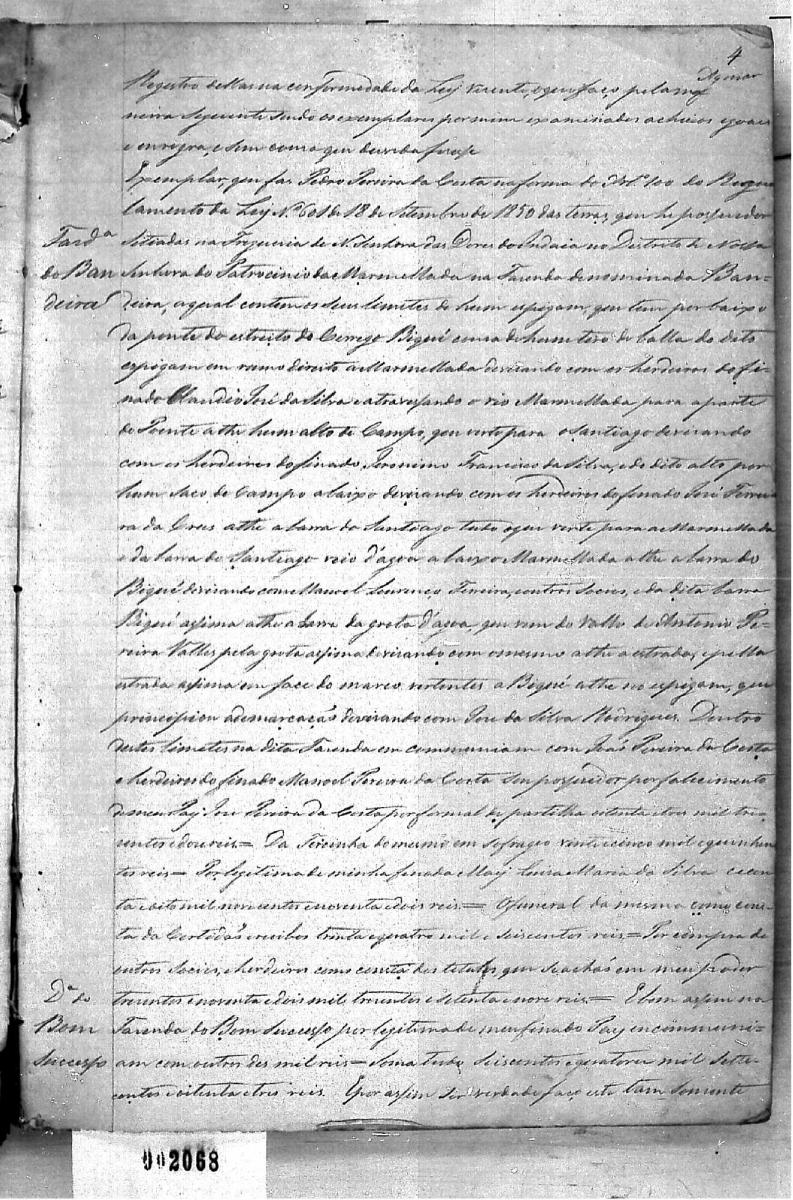 4
Aguiar
Registro de Mas na conformidade da Ley vicente, o que faço pela ma
neira seguinte sendo os exemplares por mim examinados achei os iguaes
e em regra, e sem cousa que duvida fizesse
Exemplar, que fas Pedro Pereira da Costa na forma do Art.º 100 do Regu
lamento da Ley Nº 601 de 18 de Setembro de 1850 das terras, que he possuidor
Fazdª
do Ban
deira
Setiadas na Freguesia de N. Senhora das Dores do Indaia no Destrito de Nossa
Senhora do Patrocinio da Marmellada na Fazenda denominada Ban-
deira, a qual contem os seus limites de hum espigam, que tem por baixo
da ponte do estreito do Corrego Biguá cousa de hum tiro de balla do dito
espigam em rumo direito a Marmellada devizando com os herdeiros do fi-
nado Claudio José da Silva e atravessando o rio Marmellada para a parte
do Poente athe hum alto de Campo, que verte para o Santiago devizando
com os herdeiros do finado Jeronimo Francisco da Silva, e do dito alto por
hum Saco de Campo abaixo devizando com os herdeiros do finado José Ferrei
ra da Crus athe a barra do Santiago tudo o que verte para a Marmellada
e da barra do Santiago veio d'agoa abaixo Marmellada athe a barra do
Biguá devizando com Manoel Lourenço Ferreira, e outros Socios, e da dita barra
Biguá assima athe a barra da grota d'agoa, que vem do Vallo de Antonio Pe-
reira Valles pela grota assima devizando com o mesmo athe a estrada, e pella
estrada assima em face do marco vertentes a Biguá athe no espigam, que
principiou a demarcação devizando com José da Silva Rodrigues. Dentro
destes limetes na dita Fazenda em communiam com João Pereira da Costa
e herdeiros do finado Manoel Pereira da Costa sou possuidor por falecimento
de meu Pay José Pereira da Costa por formal de partilha oitenta e tres mil tre-
zentos e dous reis = Da Tercinha do mesmo em sofragio vinte e cinco mil e quinhen
tos reis = Por legitima de minha finada May Luisa Maria da Silva cecen
ta e oito mil nove centos e noventa e dois reis = O funeral da mesma como cons-
ta da Certidão e recibos trinta e quatro mil e seiscentos reis = Por compra de
outros Socios, e herdeiros como consta dos titulos que se achão em meu poder
trezentos e noventa e dois mil trezentos e setenta e nove reis = E bem assim na
Dª do
Bom
Sucesso
Fazenda do Bom Sucesso por legitima de meu finado Pay em communi-
am com outros des mil reis = Soma tudo Seiscentos e quatorze mil sette-
centos e oitenta e tres reis. E por assim ser verdade faço este tam somente
002068